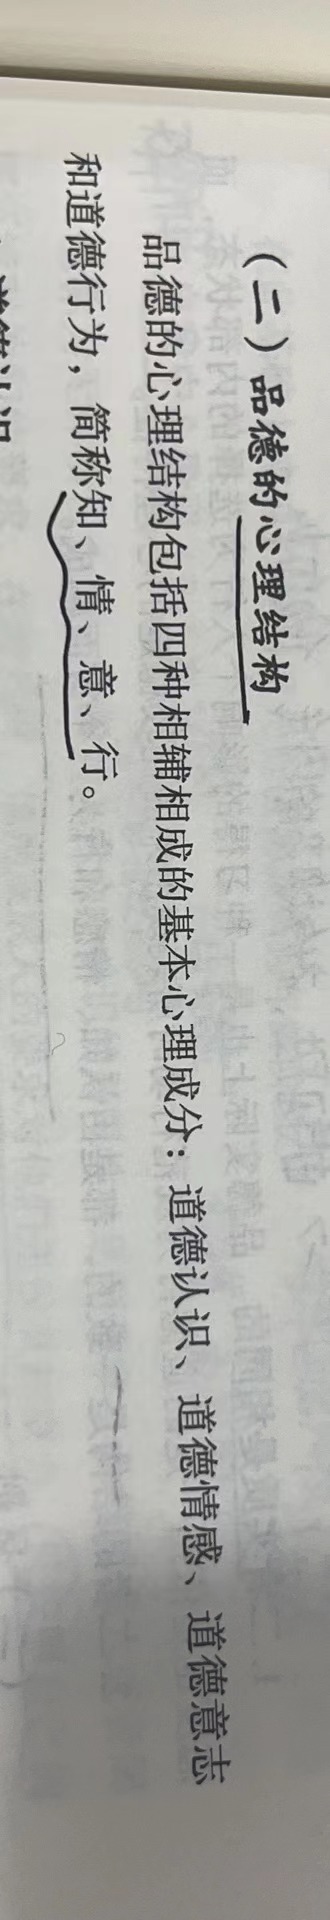 （二）品德的心理结构
品德的心理结构包括四种相辅相成的基本心理成分：道德认识、道德情感、道德意志
和道德行为，简称知、情、意、行。